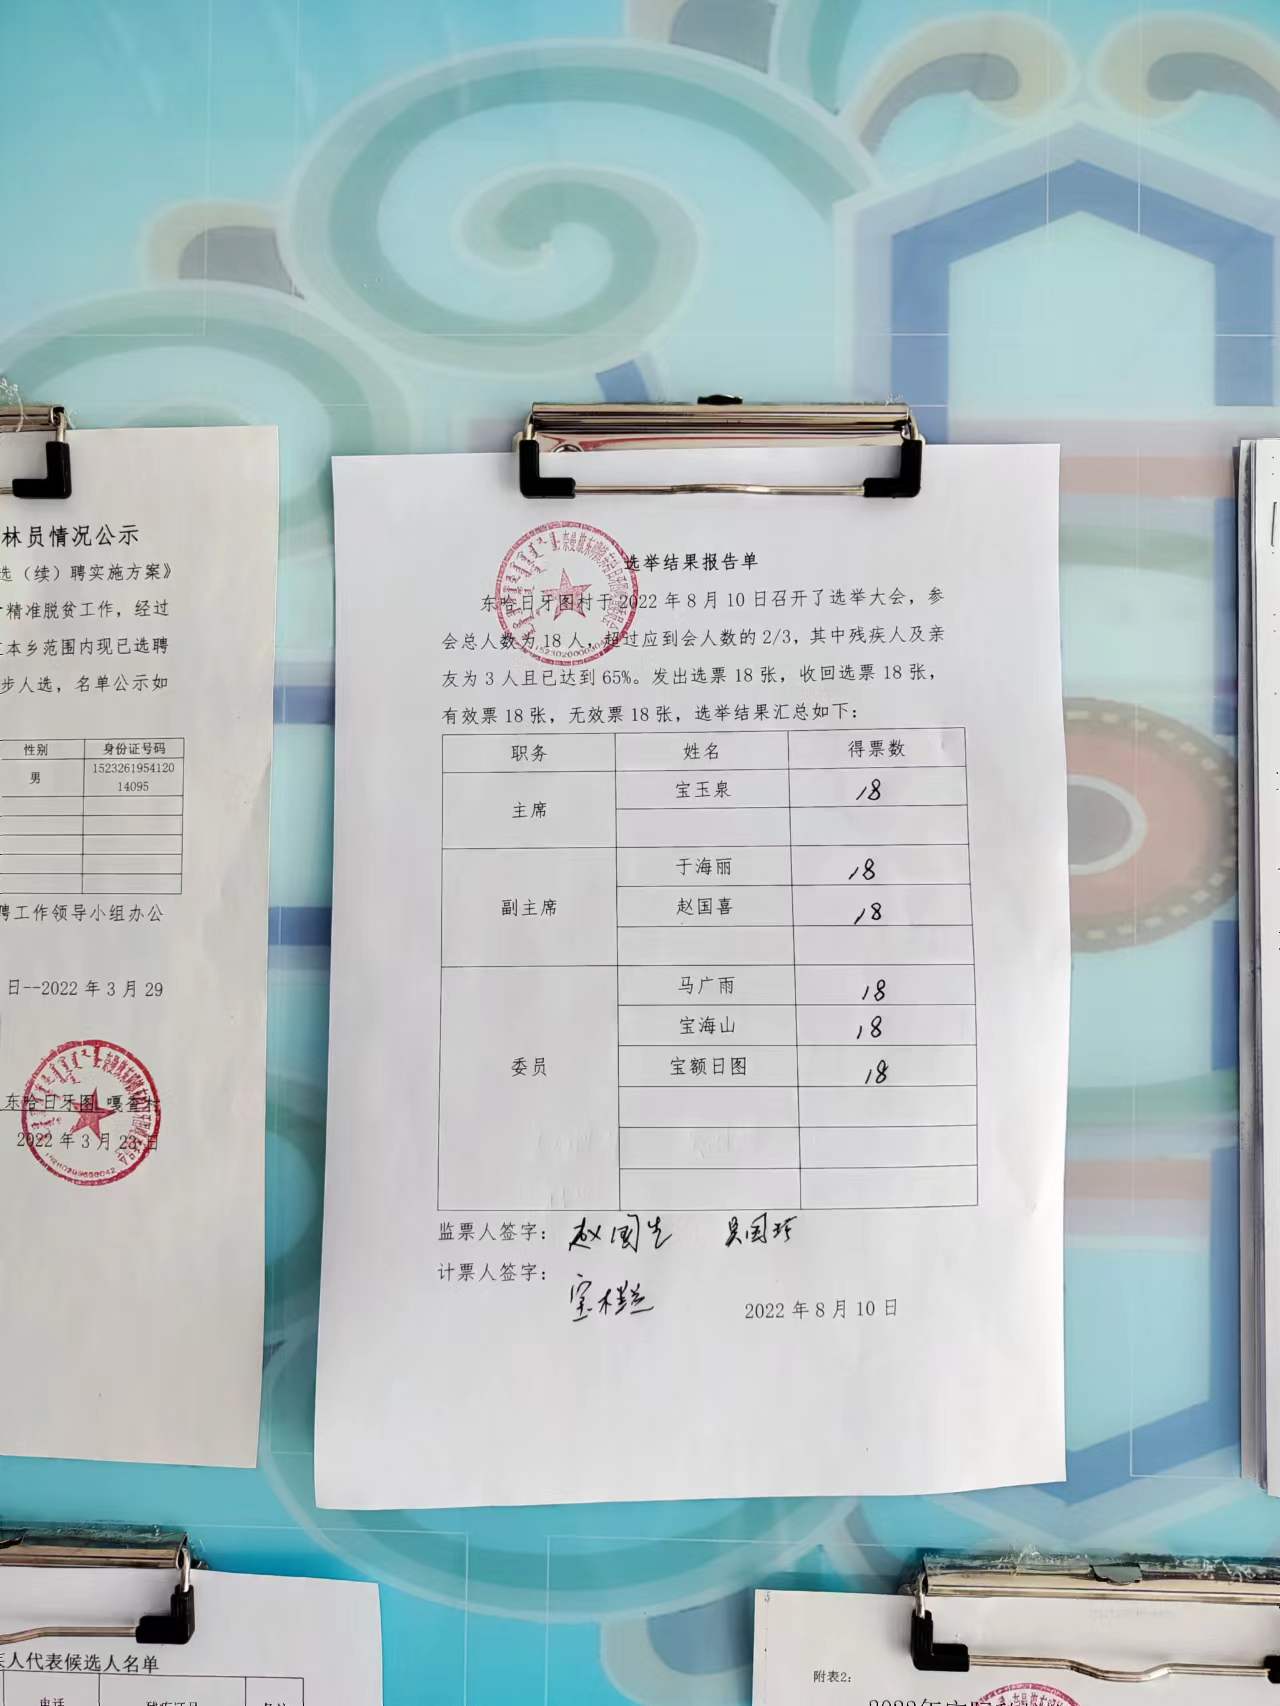 林员情况公示
选（续）聘实施方案》
精准脱贫工作，经过
本乡范围内现已选聘
步人选，名单公示如
性别 身份证号码
男 1523261954120
14095
聘工作领导小组办公
日--2022 年 3 月 29
东哈日牙图 嘎查村
2022 年 3 月 23 日
选举结果报告单
东哈日牙图村于 2022 年 8 月 10 日召开了选举大会，参
会总人数为 18 人，超过应到会人数的 2/3，其中残疾人及亲
友为 3 人且已达到 65%。发出选票 18 张，收回选票 18 张，
有效票 18 张，无效票 18 张，选举结果汇总如下：
职务 姓名 得票数
主席 宝玉泉 18
副主席 于海丽 18
赵国喜 18
委员 马广雨 18
宝海山 18
宝额日图 18
监票人签字： 赵国
计票人签字：
2022 年 8 月 10 日
人代表候选人名单
电话
附表2：